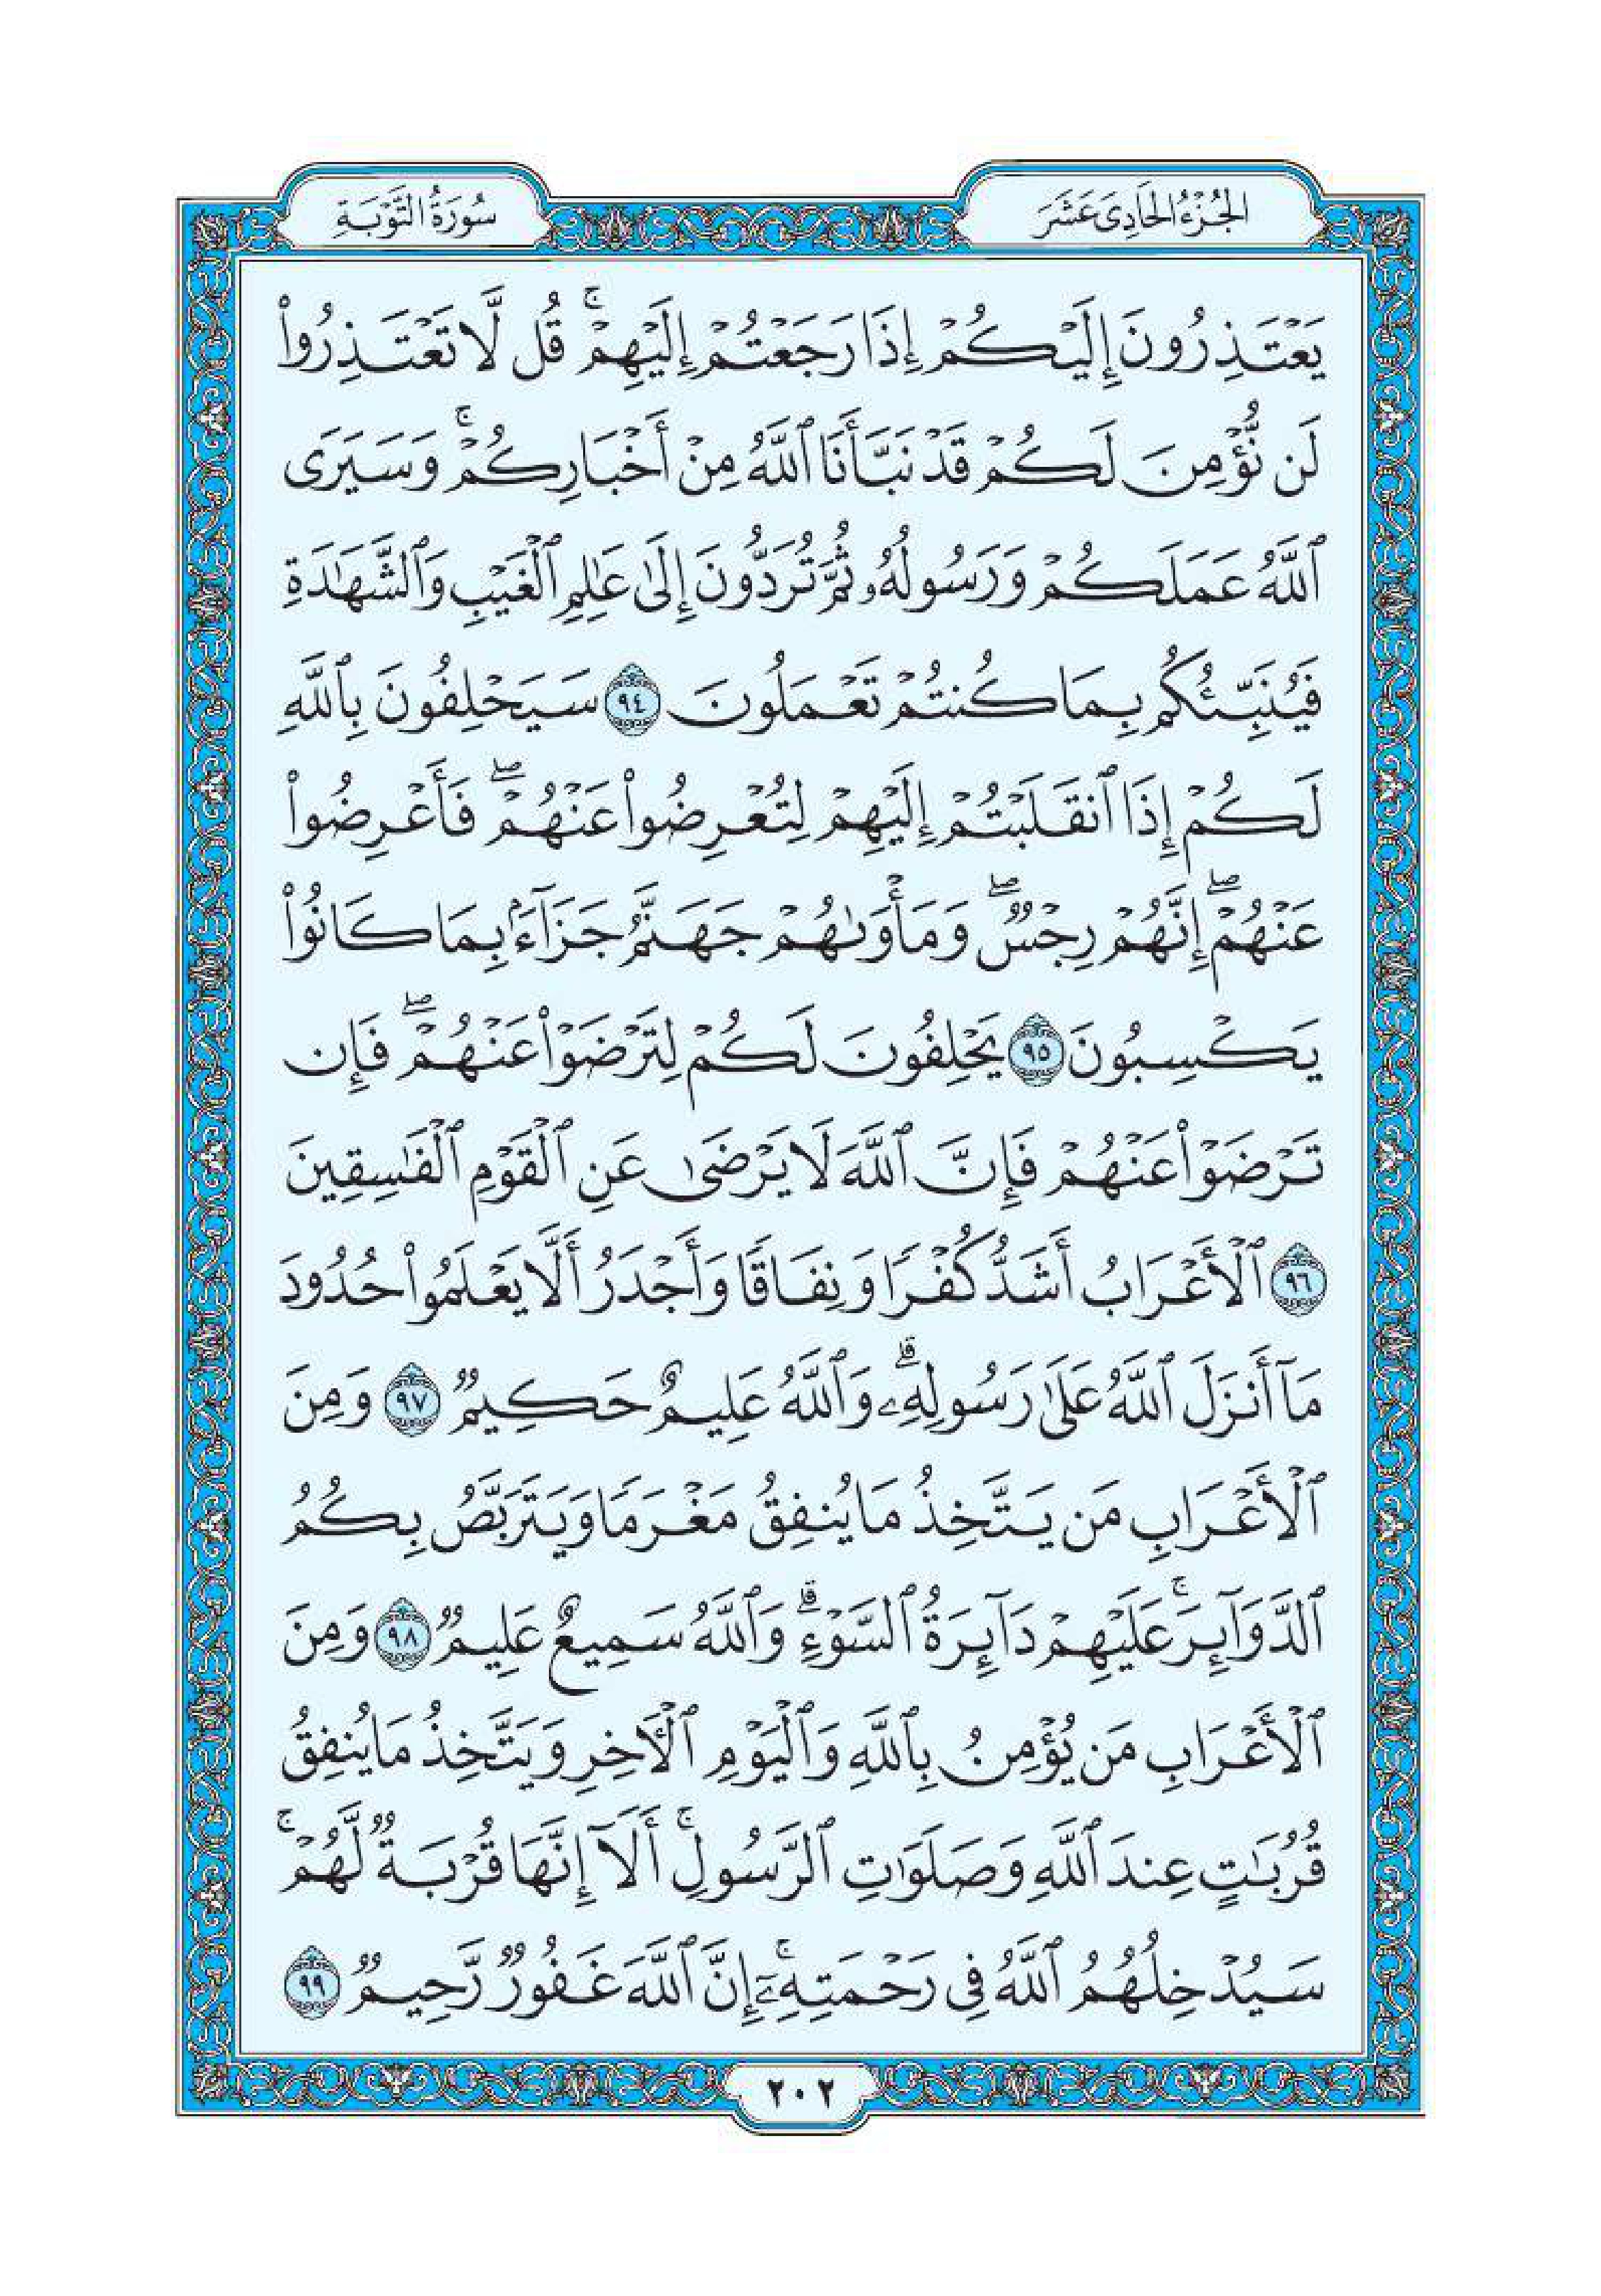 الجُزْءُ الحَادِىَ عَشَرَ
سُورَةُ التَّوْبَةِ
يَعْتَذِرُونَ إِلَيْكُمْ إِذَا رَجَعْتُمْ إِلَيْهِمْ ۚ قُل لَّا تَعْتَذِرُوا۟
لَن نُّؤْمِنَ لَكُمْ قَدْ نَبَّأَنَا ٱللَّهُ مِنْ أَخْبَارِكُمْ ۚ وَسَيَرَى
ٱللَّهُ عَمَلَكُمْ وَرَسُولُهُۥ ثُمَّ تُرَدُّونَ إِلَىٰ عَـٰلِمِ ٱلْغَيْبِ وَٱلشَّهَـٰدَةِ
فَيُنَبِّئُكُم بِمَا كُنتُمْ تَعْمَلُونَ ٩٤ سَيَحْلِفُونَ بِٱللَّهِ
لَكُمْ إِذَا ٱنقَلَبْتُمْ إِلَيْهِمْ لِتُعْرِضُوا۟ عَنْهُمْ ۖ فَأَعْرِضُوا۟
عَنْهُمْ ۖ إِنَّهُمْ رِجْسٌ ۖ وَمَأْوَىٰهُمْ جَهَنَّمُ جَزَآءًۢ بِمَا كَانُوا۟
يَكْسِبُونَ ٩٥ يَحْلِفُونَ لَكُمْ لِتَرْضَوْا۟ عَنْهُمْ ۖ فَإِن
تَرْضَوْا۟ عَنْهُمْ فَإِنَّ ٱللَّهَ لَا يَرْضَىٰ عَنِ ٱلْقَوْمِ ٱلْفَـٰسِقِينَ
٩٦ ٱلْأَعْرَابُ أَشَدُّ كُفْرًا وَنِفَاقًا وَأَجْدَرُ أَلَّا يَعْلَمُوا۟ حُدُودَ
مَآ أَنزَلَ ٱللَّهُ عَلَىٰ رَسُولِهِۦ ۗ وَٱللَّهُ عَلِيمٌ حَكِيمٌ ٩٧ وَمِنَ
ٱلْأَعْرَابِ مَن يَتَّخِذُ مَا يُنفِقُ مَغْرَمًا وَيَتَرَبَّصُ بِكُمُ
ٱلدَّوَآئِرَ ۚ عَلَيْهِمْ دَآئِرَةُ ٱلسَّوْءِ ۗ وَٱللَّهُ سَمِيعٌ عَلِيمٌ ٩٨ وَمِنَ
ٱلْأَعْرَابِ مَن يُؤْمِنُ بِٱللَّهِ وَٱلْيَوْمِ ٱلْـَٔاخِرِ وَيَتَّخِذُ مَا يُنفِقُ
قُرُبَـٰتٍ عِندَ ٱللَّهِ وَصَلَوَٰتِ ٱلرَّسُولِ ۚ أَلَآ إِنَّهَا قُرْبَةٌ لَّهُمْ ۚ
سَيُدْخِلُهُمُ ٱللَّهُ فِى رَحْمَتِهِۦٓ ۚ إِنَّ ٱللَّهَ غَفُورٌ رَّحِيمٌ ٩٩
٢٠٢